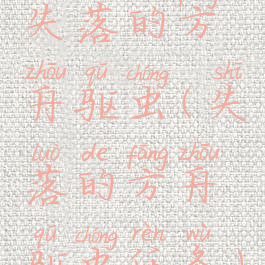 失落的方
zhōu qū chóng shī
舟驱虫(失
luò de fāng zhōu
落的方舟
qū chóng rèn wù
驱虫任务)